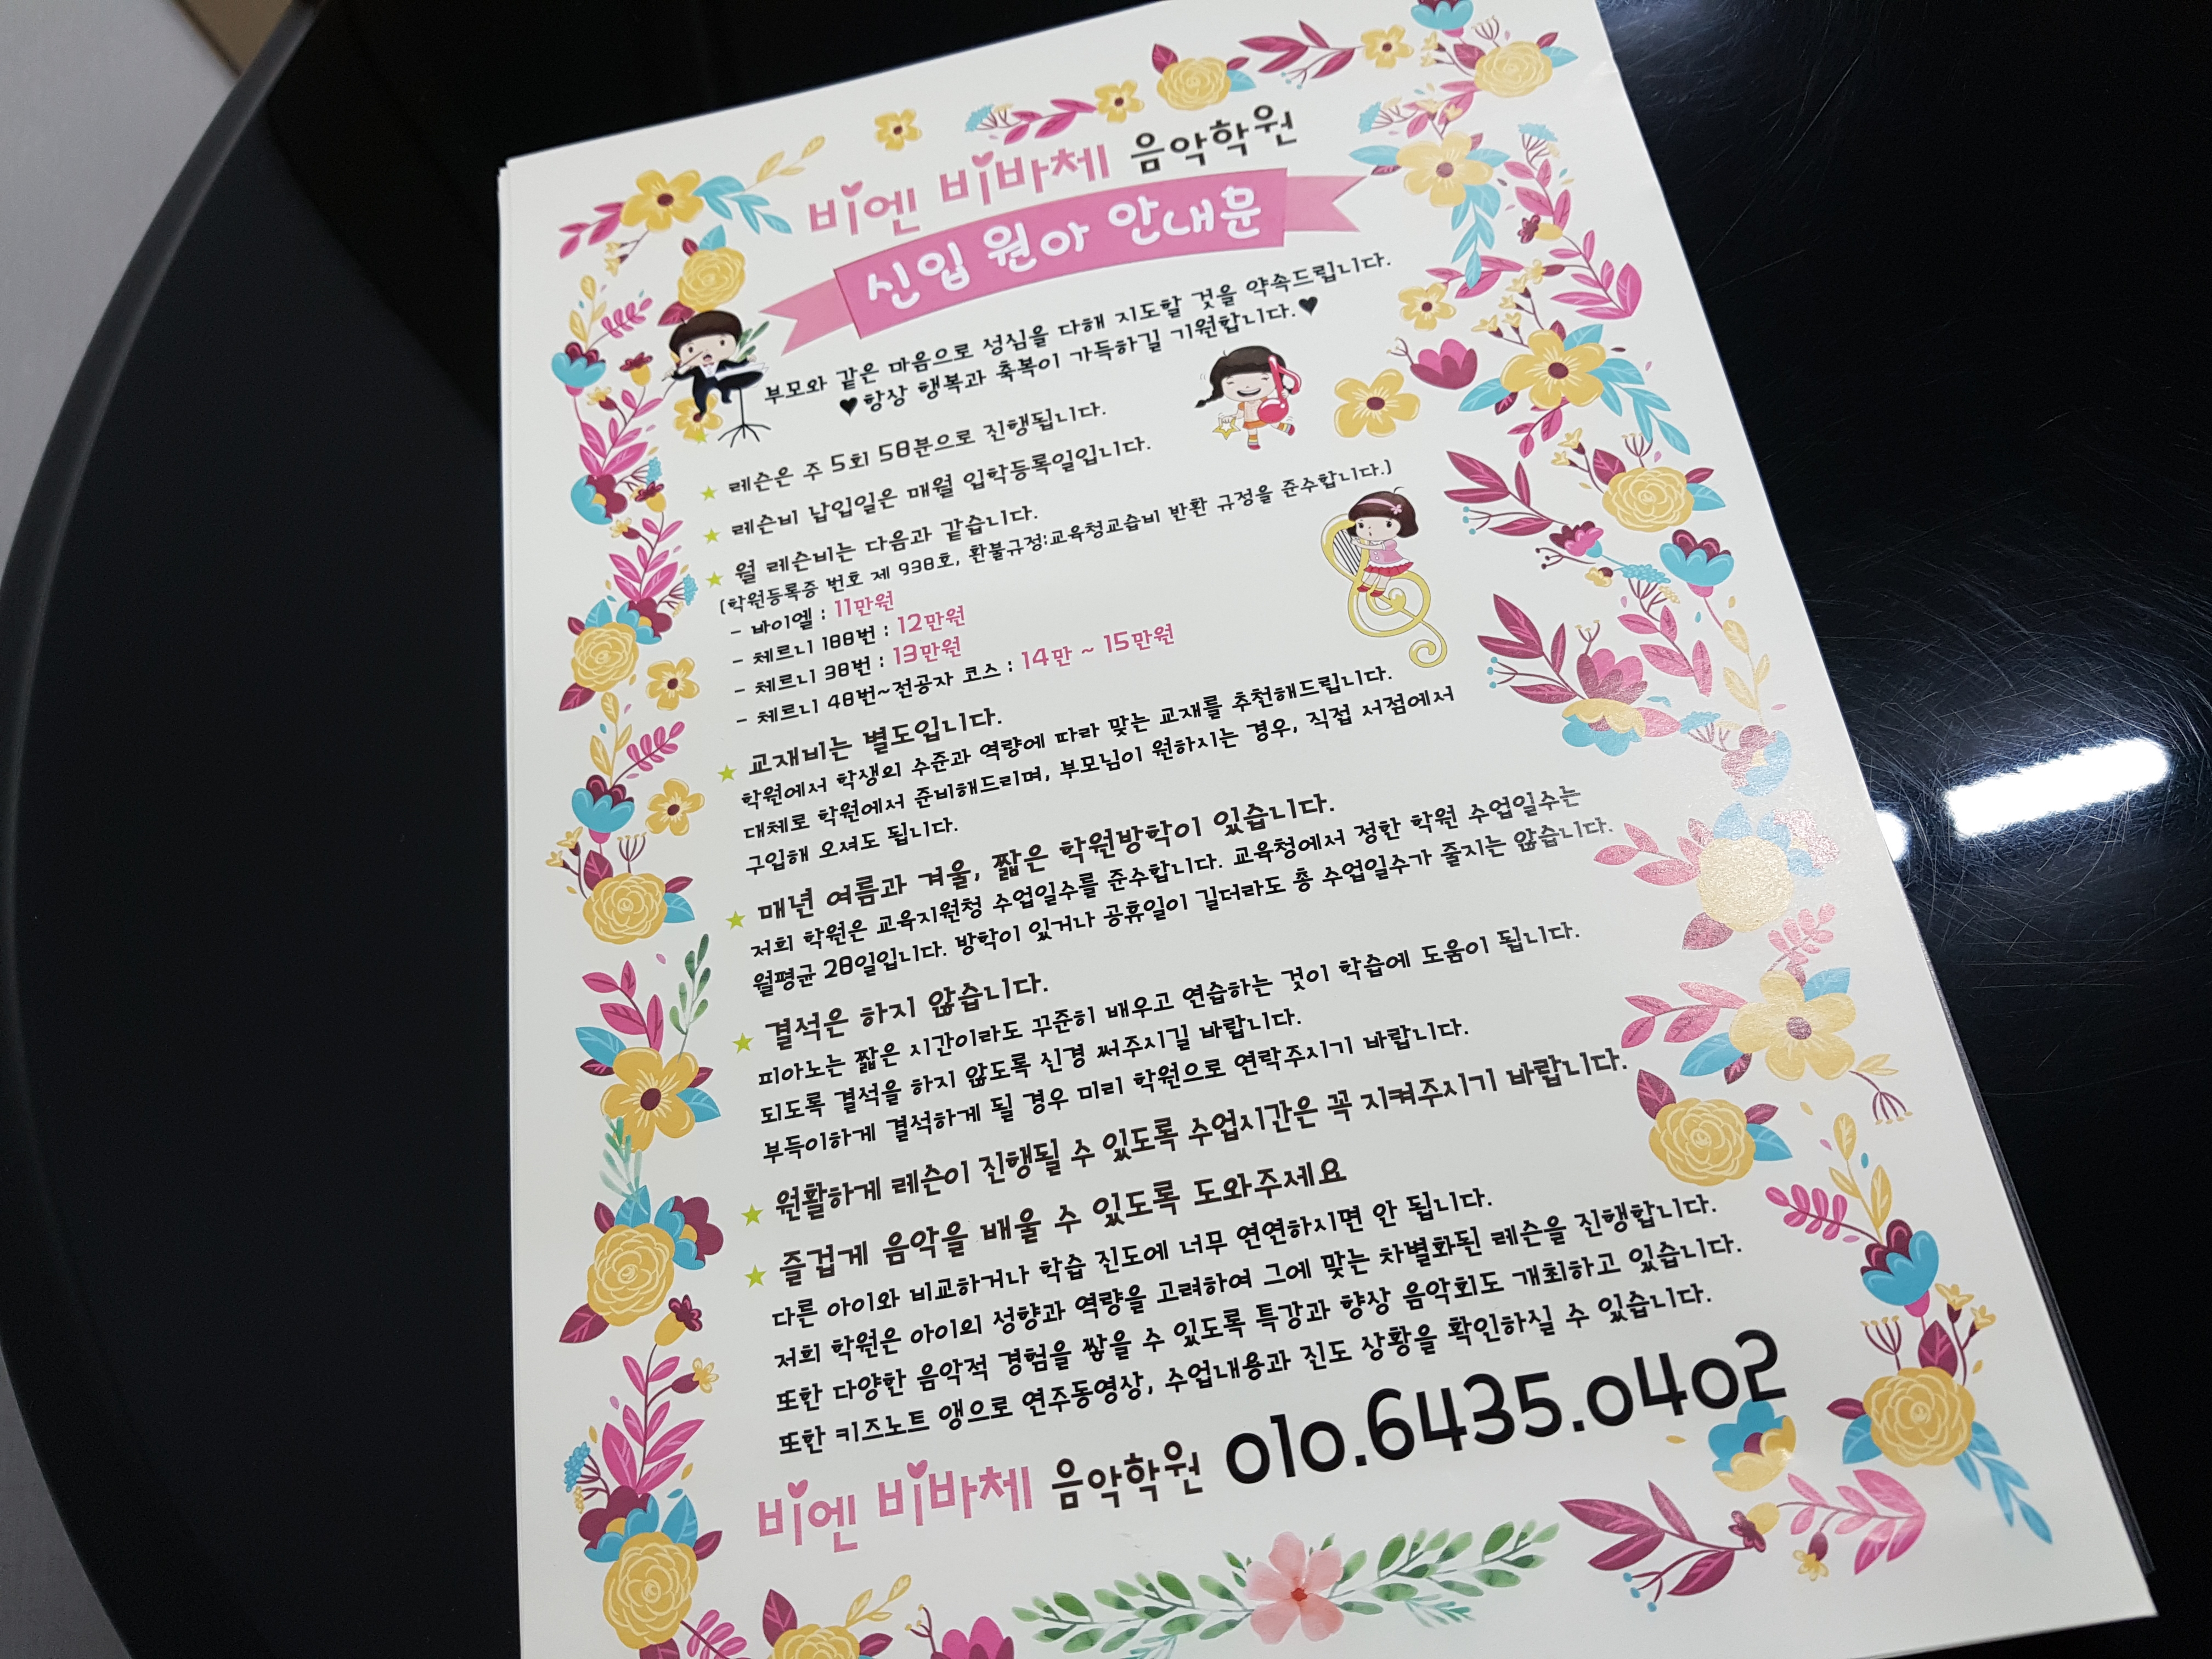 비엔 비바체 음악학원
신입 원아 안내문
부모와 같은 마음으로 성심을 다해 지도할 것을 약속드립니다.
♥항상 행복과 축복이 가득하길 기원합니다.♥
★ 레슨은 주 5회 50분으로 진행됩니다.
★ 레슨비 납입일은 매월 입학등록일입니다.
★ 월 레슨비는 다음과 같습니다.
(학원등록증 번호 제 930호, 환불규정:교육청교습비 반환 규정을 준수합니다.)
- 바이엘 : 11만원
- 체르니 100번 : 12만원
- 체르니 30번 : 13만원
- 체르니 40번~전공자 코스 : 14만 ~ 15만원
★ 교재비는 별도입니다.
학원에서 학생의 수준과 역량에 따라 맞는 교재를 추천해드립니다.
대체로 학원에서 준비해드리며, 부모님이 원하시는 경우, 직접 서점에서
구입해 오셔도 됩니다.
★ 매년 여름과 겨울, 짧은 학원방학이 있습니다.
저희 학원은 교육지원청 수업일수를 준수합니다. 교육청에서 정한 학원 수업일수는
월평균 20일입니다. 방학이 있거나 공휴일이 길더라도 총 수업일수가 줄지는 않습니다.
★ 결석은 하지 않습니다.
피아노는 짧은 시간이라도 꾸준히 배우고 연습하는 것이 학습에 도움이 됩니다.
되도록 결석을 하지 않도록 신경 써주시길 바랍니다.
부득이하게 결석하게 될 경우 미리 학원으로 연락주시기 바랍니다.
★ 원활하게 레슨이 진행될 수 있도록 수업시간은 꼭 지켜주시기 바랍니다.
★ 즐겁게 음악을 배울 수 있도록 도와주세요
다른 아이와 비교하거나 학습 진도에 너무 연연하시면 안 됩니다.
저희 학원은 아이의 성향과 역량을 고려하여 그에 맞는 차별화된 레슨을 진행합니다.
또한 다양한 음악적 경험을 쌓을 수 있도록 특강과 향상 음악회도 개최하고 있습니다.
또한 키즈노트 앱으로 연주동영상, 수업내용과 진도 상황을 확인하실 수 있습니다.
비엔 비바체 음악학원 010.6435.0402